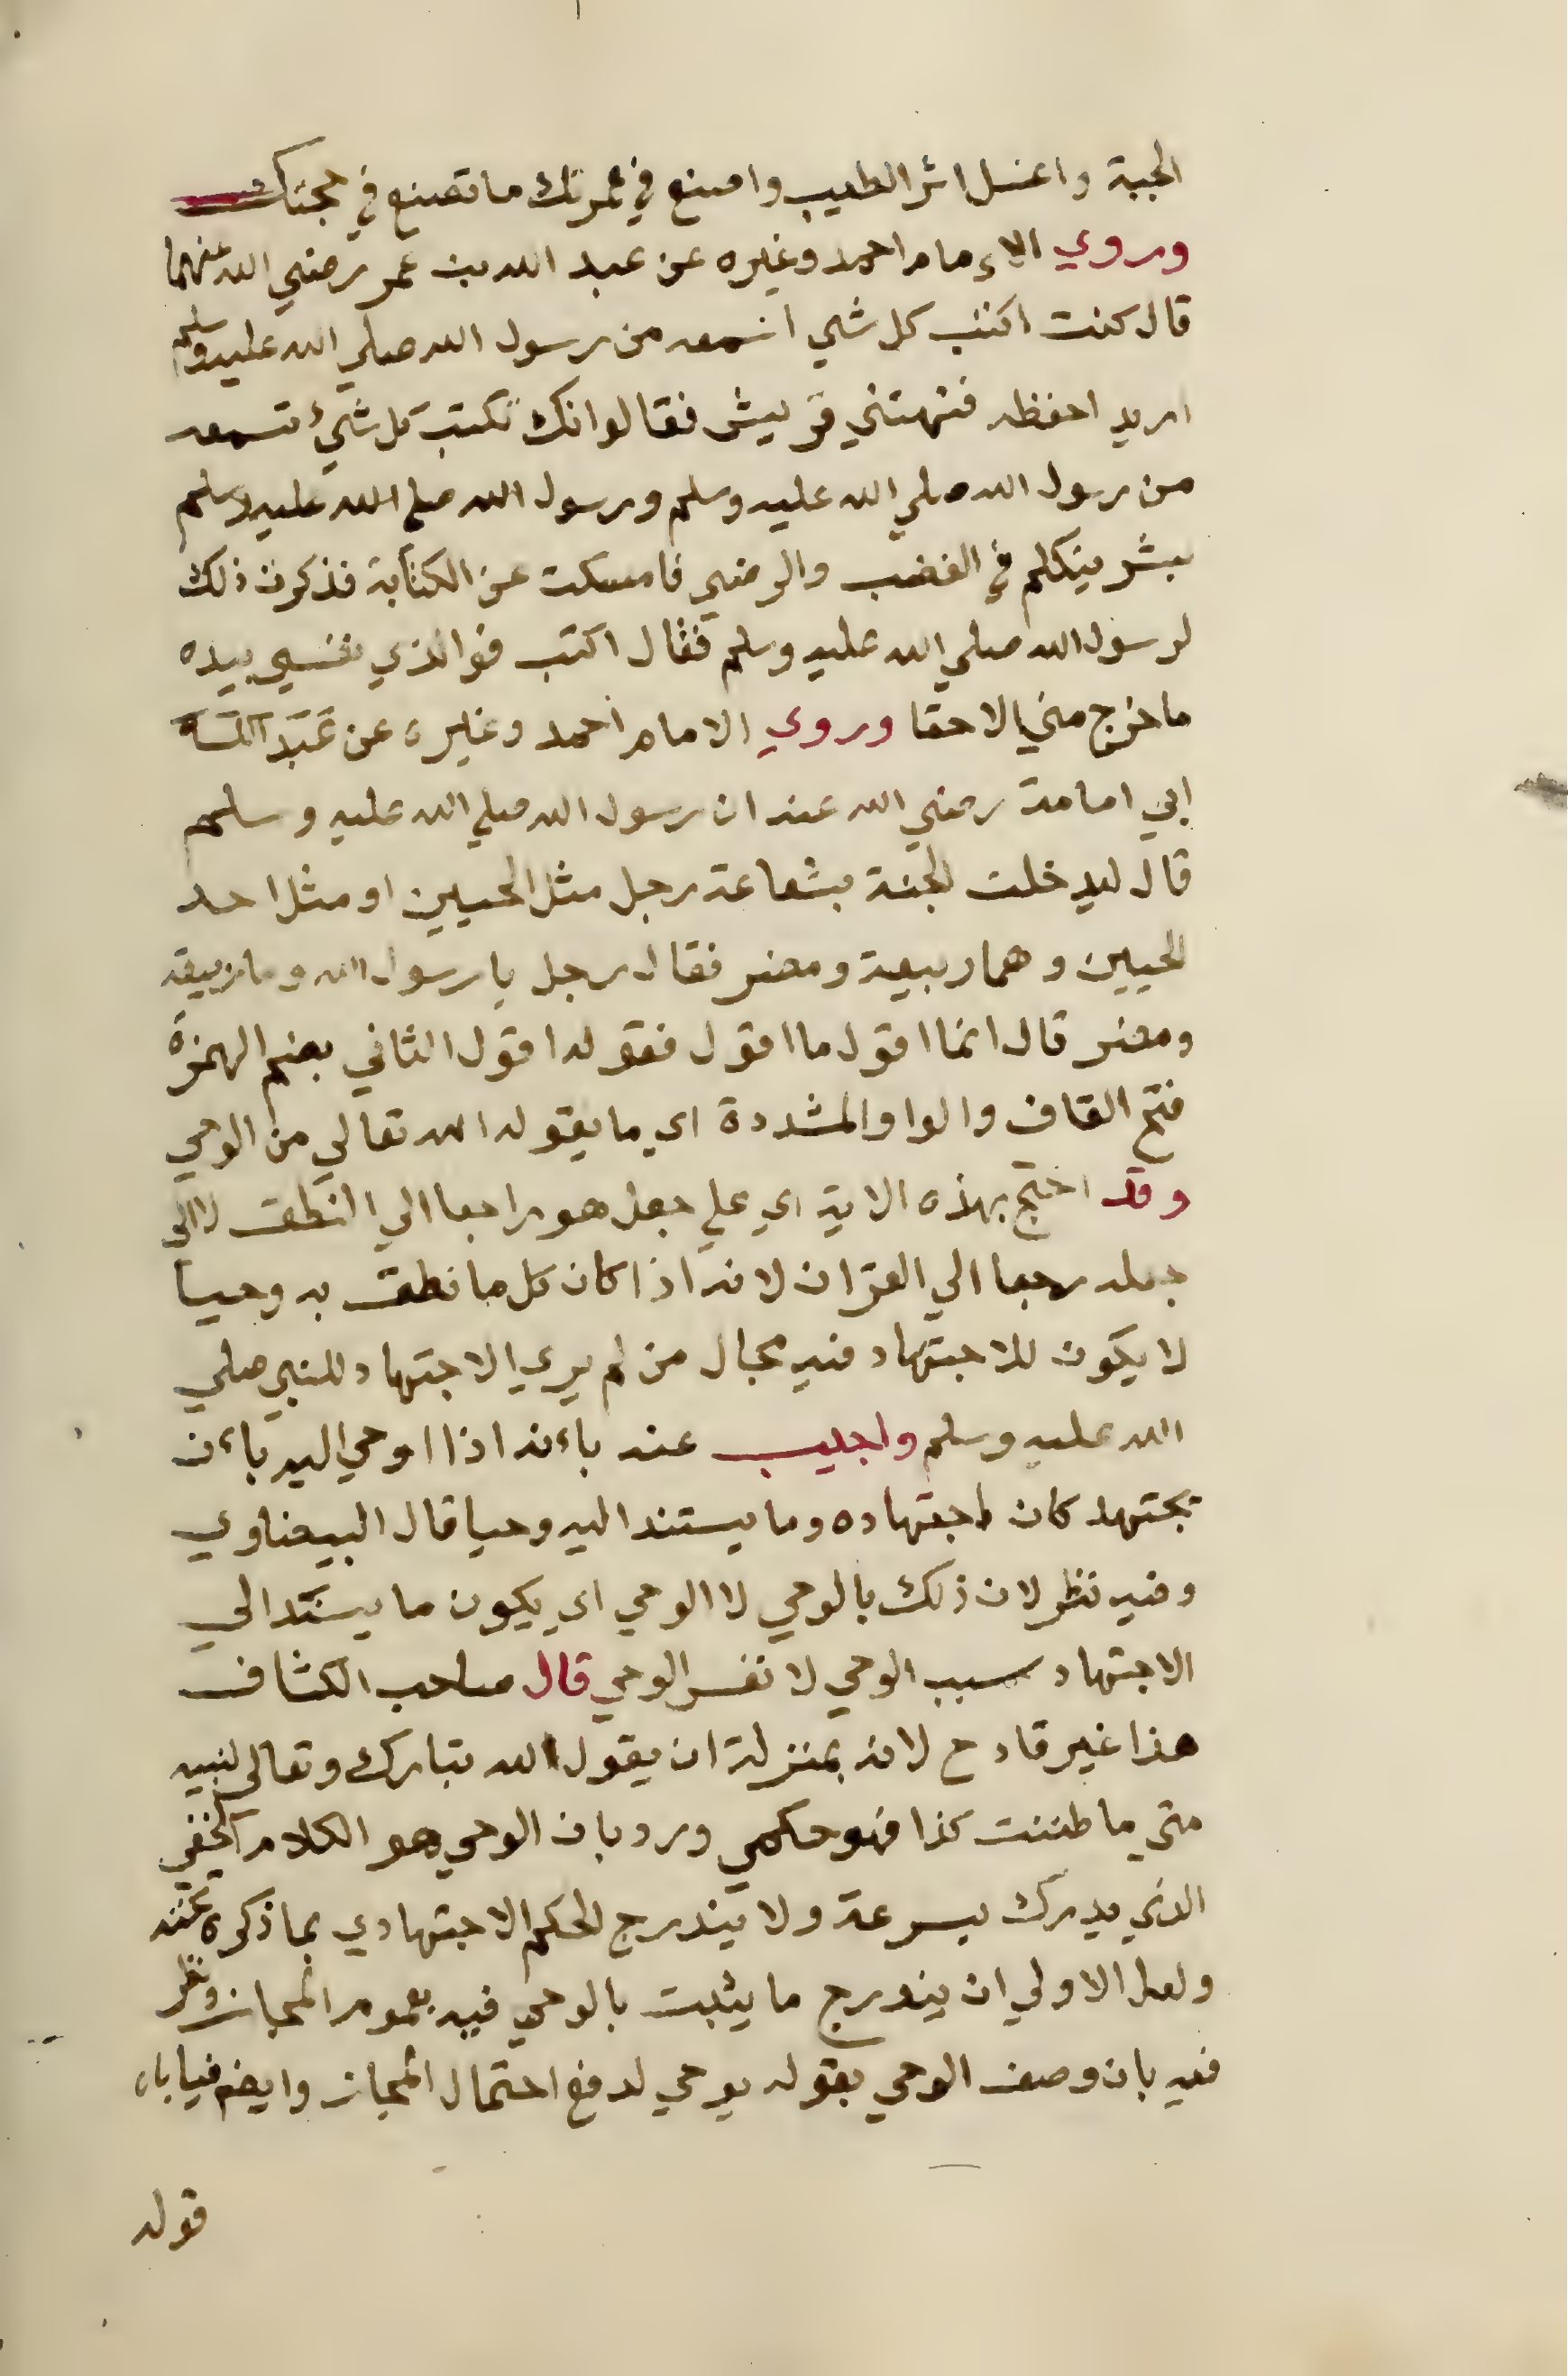 الجبة واغسل اثر الطيب واصنع في عمرتك ما تصنع في حجتك
وروي الاءمام احمد وغيره عن عبد الله بن عمر رضي الله عنهما
قال كنت اكتب كل شي اسمعه من رسول الله صلي الله عليه وسلم
اريد احفظه فنهتني قريش فقالوا انك تكتب كل شيء تسمعه
من رسول الله صلي الله عليه وسلم ورسول الله صلي الله عليه وسلم
بشر يتكلم في الغضب والرضي فامسكت عن الكتابة فذكرت ذلك
لرسول الله صلي الله عليه وسلم فقال اكتب فوالذي نفسي بيده
ما خرج مني الا حقا وروي الامام احمد وغيره عن عبد الله
ابي امامة رضي الله عنه ان رسول الله صلي الله عليه وسلم
قال ليدخلن الجنة بشفاعة رجل مثل الحيين او مثل احد
الحيين وهما ربيعة ومضر فقال رجل يا رسول الله وما ربيعة
ومضر قال انما اقول ما اقول فقوله اقول الثاني بضم الهمزة
فتح القاف والواو المشددة اي ما يقوله الله تعالي من الوحي
وقد احتج بهذه الاية اي علي جعل هو راجعا الي النطق لا الي
جعله رجعا الي القران لانه اذا كان كل ما نطق به وحيا
لا يكون للاجتهاد فيه مجال من لم يري الاجتهاد للنبي صلي
الله عليه وسلم واجيب عنه باءنه اذا اوحي اليه باءن
يجتهد كان اجتهاده وما يستند اليه وحيا قال البيضاوي
وفيه نظر لان ذلك بالوحي لا الوحي اي يكون ما يستند الي
الاجتهاد سبب الوحي لا نفس الوحي قال صاحب الكشاف
هذا غير قادح لانه بمنزلة ان يقول الله تبارك وتعالى لنبيه
متي ما ظننت كذا فهو حكمي ورد بان الوحي هو الكلام الخفي
الذي يدرك بسرعة ولا يندرج الحكم الاجتهادي بما ذكره عنه
ولعل الاولي ان يندرج ما يثبت بالوحي فيه بعموم المجاز ونظر
فيه بان وصف الوحي بقوله يوحي لدفع احتمال المجاز وايضا
قوله